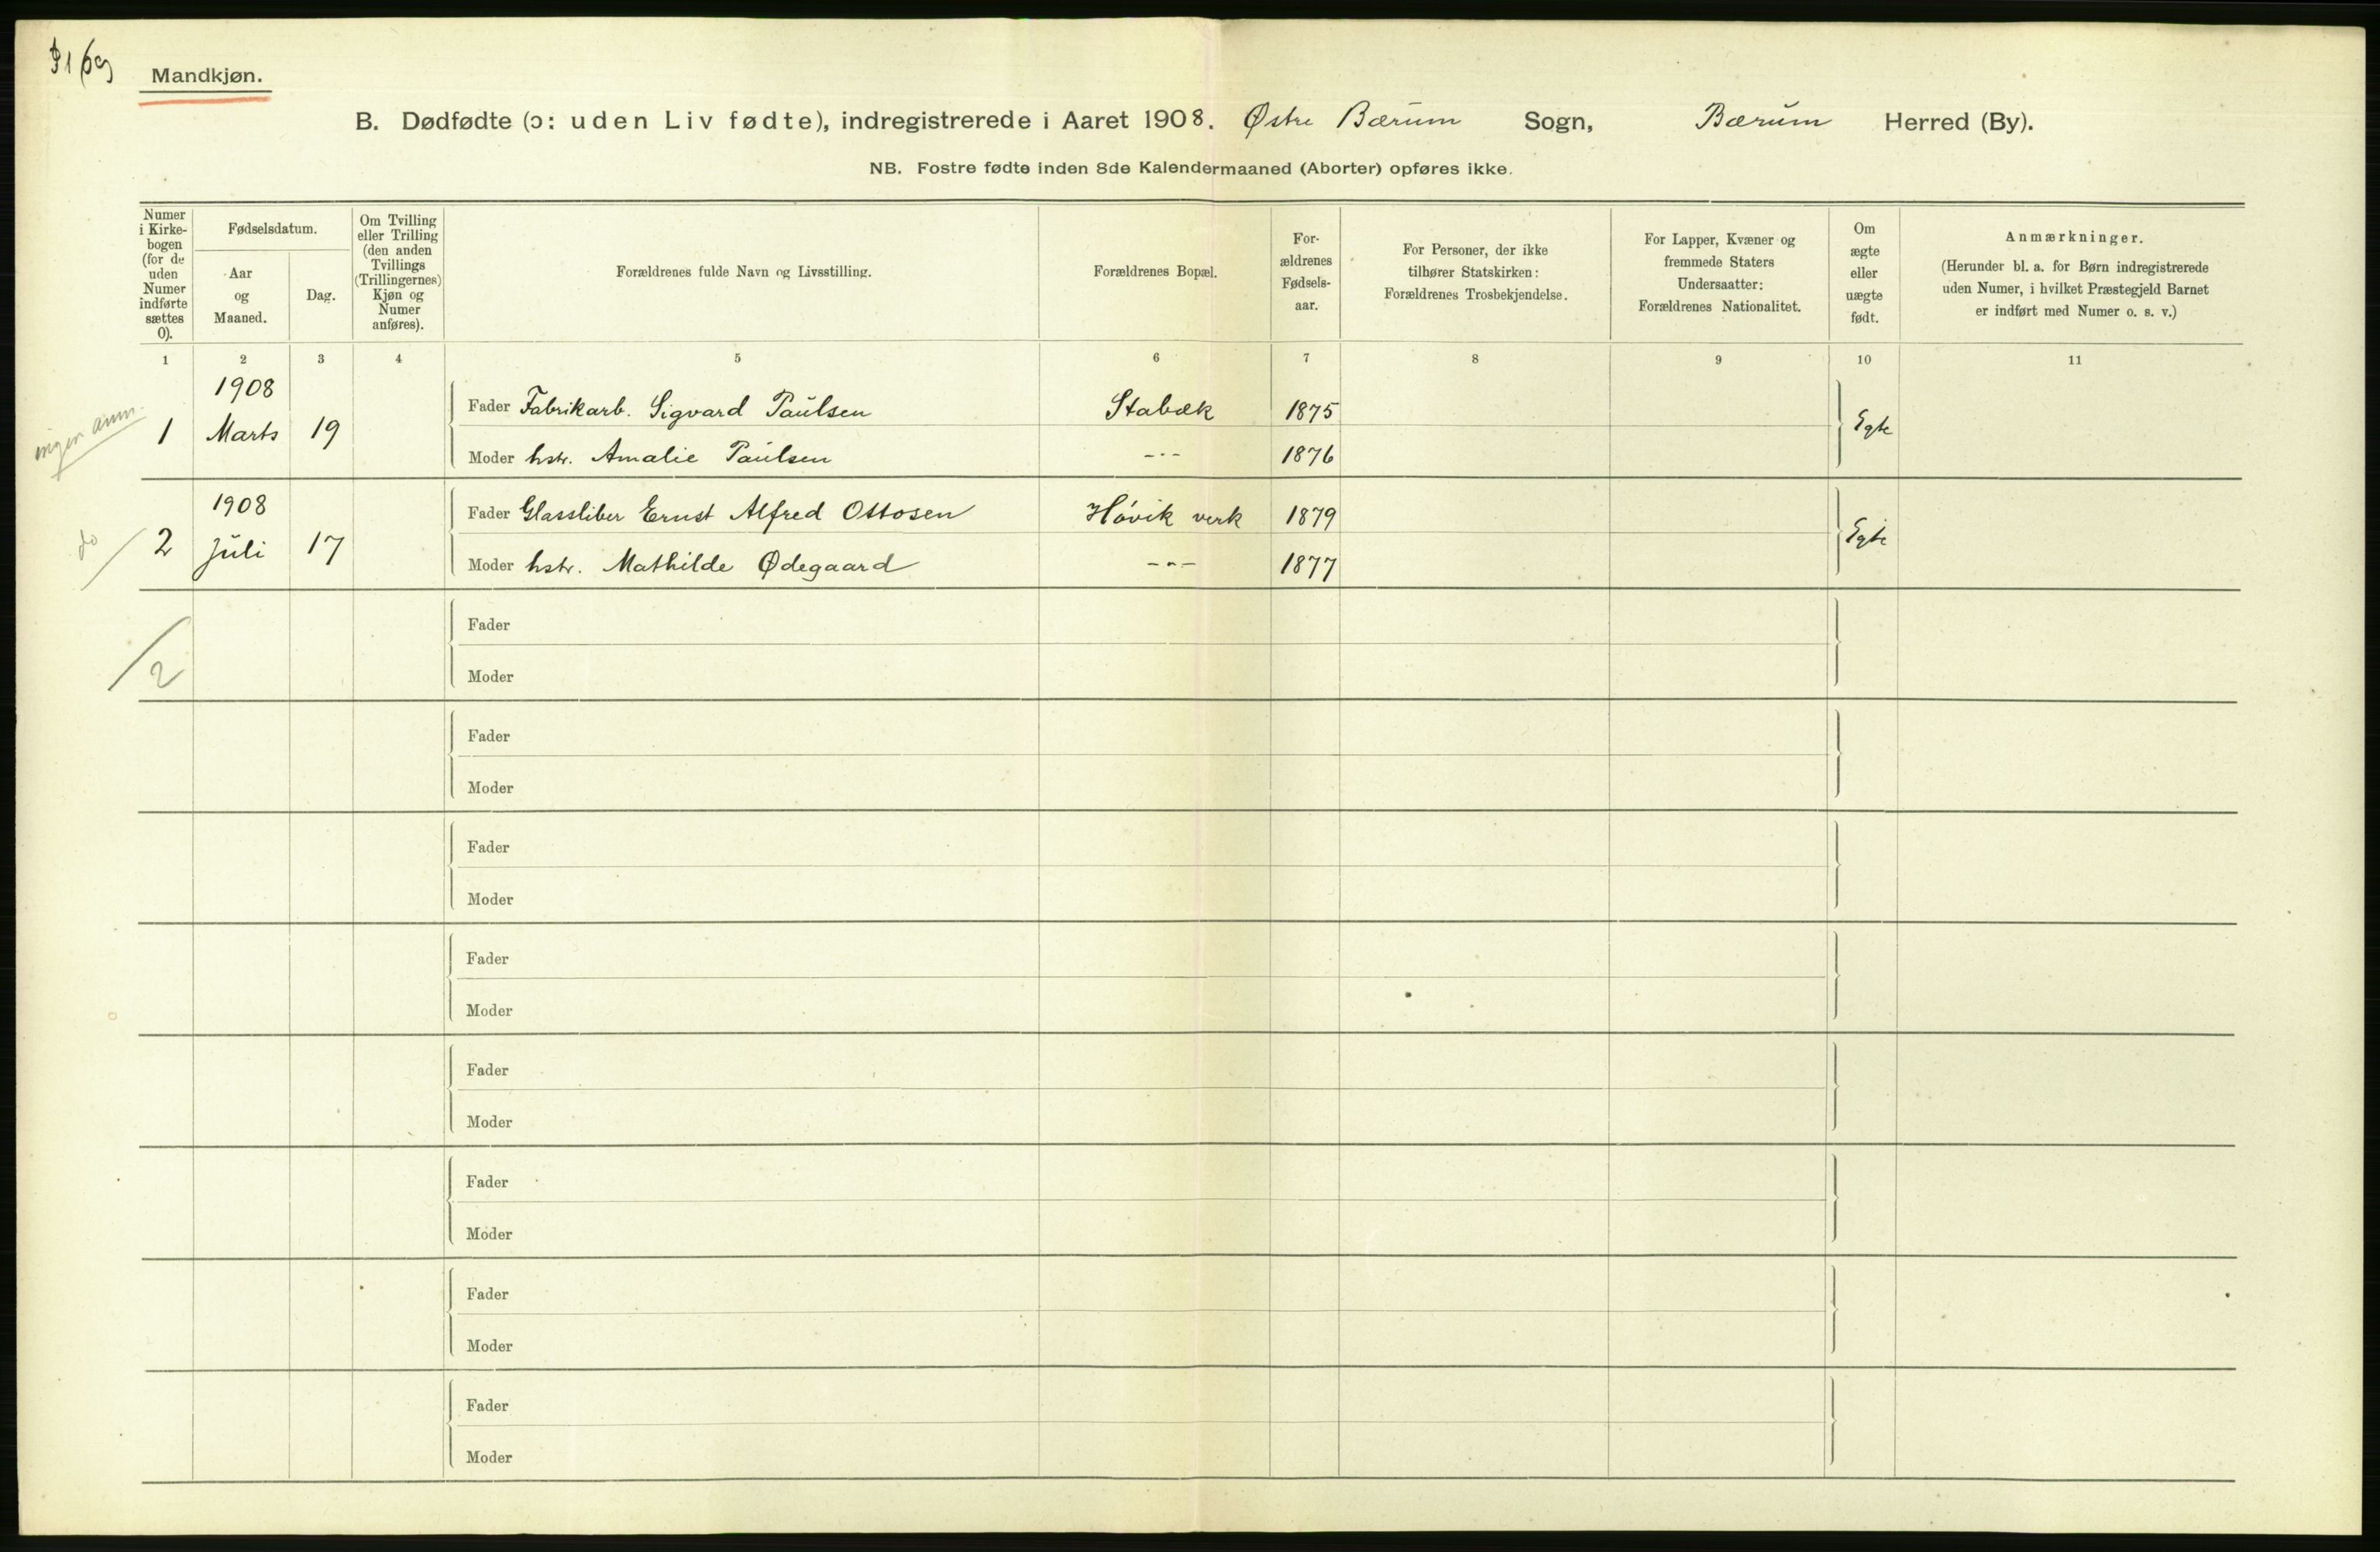 Mandkjøn.
B. Dødfødte (ɔ: uden Liv fødte), indregistrerede i Aaret 1908. Østre Bærum Sogn, Bærum Herred (By).
NB. Fostre fødte inden 8de Kalendermaaned (Aborter) opføres ikke.
Numer
i Kirke-
bogen
(for de
uden
Numer
indførte
sættes
0).
Fødselsdatum.
Aar
og
Maaned.
Dag.
Om Tvilling
eller Trilling
(den anden
Tvillings
(Trillingernes)
Kjøn og
Numer
anføres).
Forældrenes fulde Navn og Livsstilling.
Forældrenes Bopæl.
For-
ældrenes
Fødsels-
aar.
For Personer, der ikke
tilhører Statskirken:
Forældrenes Trosbekjendelse.
For Lapper, Kvæner og
fremmede Staters
Undersaatter:
Forældrenes Nationalitet.
Om
ægte
eller
uægte
født.
Anmærkninger.
(Herunder bl. a. for Børn indregistrerede
uden Numer, i hvilket Præstegjeld Barnet
er indført med Numer o. s. v.)
1 2 3 4 5 6 7 8 9 10 11
ingen anm.
1908
1 Marts 19 Fader Fabrikarb. Sigvard Paulsen Stabæk 1875 Egte
Moder hstr. Amalie Paulsen -"- 1876
do
1908
2 Juli 17 Fader Glassliber Ernst Alfred Ottosen Høvik verk 1879 Egte
Moder hstr. Mathilde Ødegaard -"- 1877
2
Fader
Moder
Fader
Moder
Fader
Moder
Fader
Moder
Fader
Moder
Fader
Moder
Fader
Moder
Fader
Moder